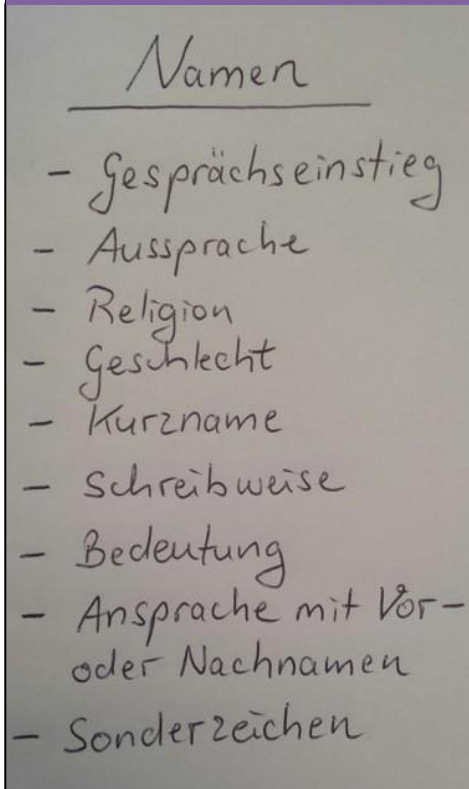 Namen
- Gesprächseinstieg
- Aussprache
- Religion
- Geschlecht
- Kurzname
- Schreibweise
- Bedeutung
- Ansprache mit Vor-
oder Nachnamen
- Sonderzeichen